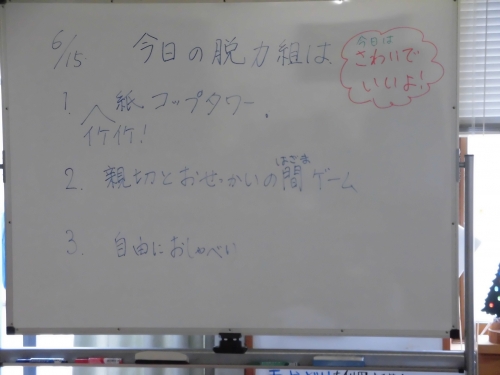 6/15 今日の脱力組は
今日は
さわいで
いいよ!
1. 紙コップタワー
イケイケ!
はざま
2. 親切とおせっかいの間ゲーム
3. 自由におしゃべい